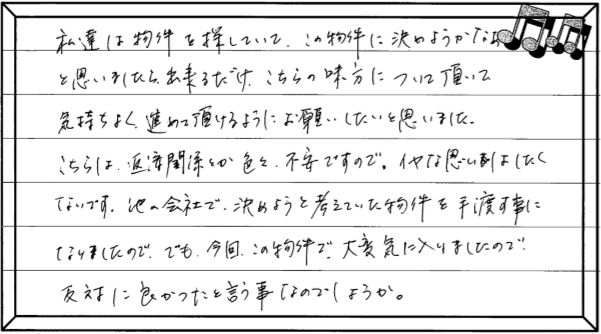 私達は物件を探していて、この物件に決めようかなあ
と思いましたら、出来るだけ、こちらの味方について頂いて
気持ちよく、進めて頂けるようにお願いしたいと思いました。
こちらは、返済関係とか色々、不安ですので。イヤな思いはしたく
ないです。他の会社で、決めようと考えていた物件を手渡す事に
なりましたので、でも、今回、この物件で、大変気に入りましたので
反対に良かったと言う事なのでしょうか。